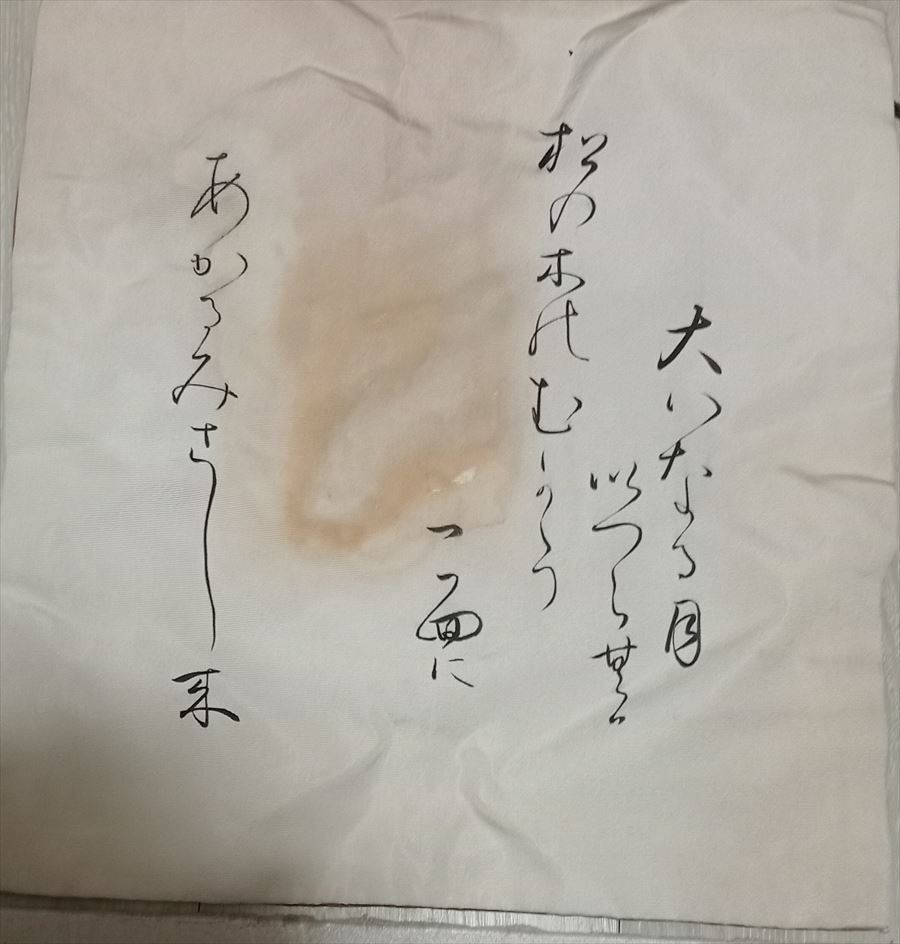 大いなる月
いつらしも
松の木のむかう
一面に
あかるみさし来